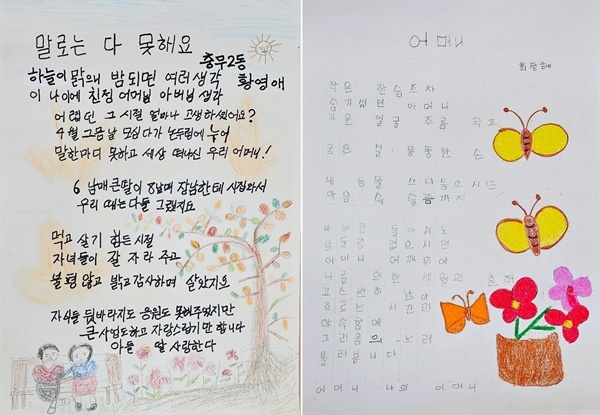 말로는 다 못해요
충무2동
황영애
하늘이 맑으니 밤되면 여러생각
이 나이에 친정 어머님 아버님 생각
어렵던 그 시절 얼마나 고생하셨어요?
4월 그믐날 모심다가 논두렁에 누어
말한마디 못하고 세상 떠나신 우리 어머니!
6남매 큰딸이 8남매 장남한테 시집와서
우리 때는 다들 그랬지요
먹고 살기 힘든 시절
자녀들이 잘 자라 주고
불평않고 밝고 감사하며 살았지요
자식들 뒷바라지도 응원도 못해주었지만
큰사업도하고 자랑스럽기만 합니다
아들 딸 사랑한다
어머니
작은 한숨조차
숨기셨던 어머니
고운 얼굴 주름
굽은 뚱뚱한 손
내 눈물
마음 속 슬픔까지
없으시던
어머니
나를 위한
고스란히 남아
흐르는 시간의
야속함에
그리움의 노래
불러봅니다
어머니 나의 어머니